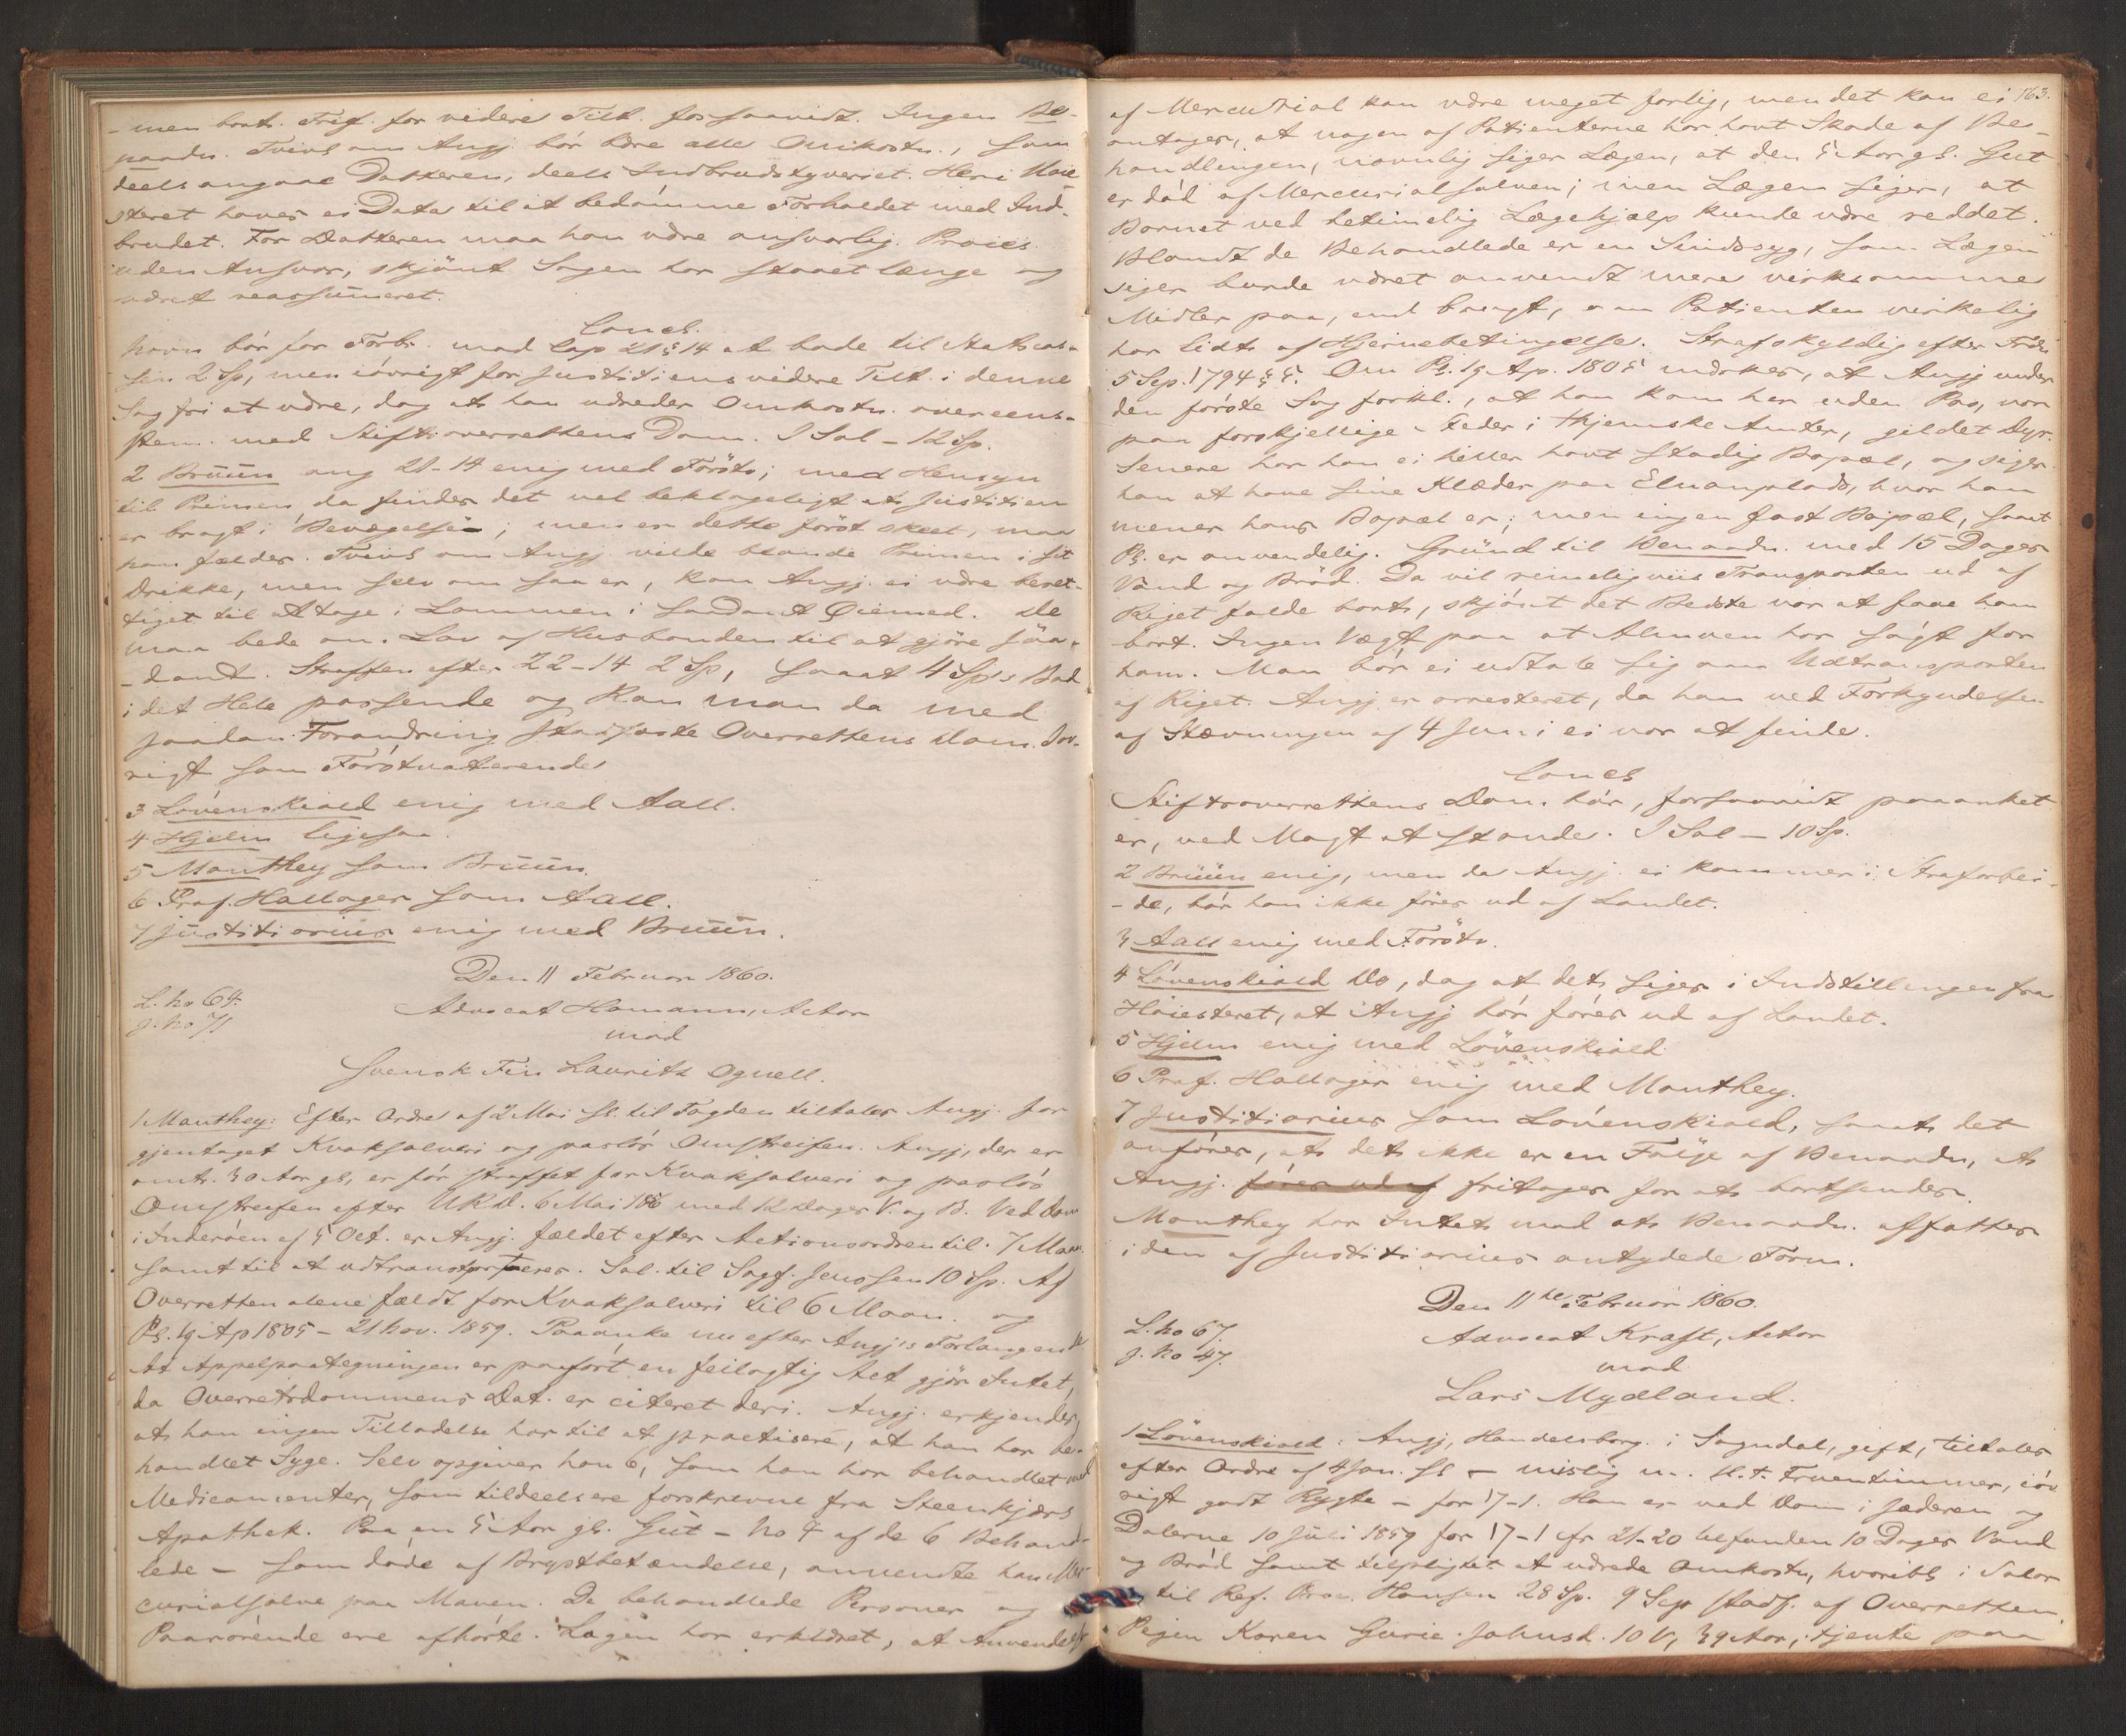 -men borts. Frif. for videre Tilt. forsaavidt. Ingen Be-
naadn. Tvivl om Angj. bör bære alle Omkostn., som
deels angaae Datteren, deels Indbrudstyveriet. Her i Høie
steret haves ei Data til at bedömme Forholdet med Ind-
brudet. For Datteren maa han være ansvarlig. Proces
uden Ansvar, skjönt Sagen har staaet længe og
været reassumeret.
Concl.
bör for Forbr. mod Cap 21 § 14 at bøde til Statscas-
sen 2 Sp, men iövrigt for Justitiens videre Tilt. i denne
Sag fri at være, dog at han udreder Omkostn. overeens-
stem. med Stiftsoverrettens Dom. I Sal - 12 Sp.
2 Brüün ang 21-14 enig med Förstv; med Hensyn
til Primen, da findes det vel beklageligt at Justitien
er bragt i Bevægelse; men er dette först skeet, maa
han fældes. Tvivl om Angj. vilde blande Primen i sit
Drikke, men selv om saa er, kan Angj. ei være beret-
tiget til at tage i Lommen i saadant Öiemed. De
maa bede om Lov af Husbonden til at gjöre saa-
-dant. Straffen efter 22-14 2 Sp, saaat 4 Sp's Bod
i det Hele passende og kan man da med
saadan Forandring stadfæste Overrettens Dom. Iöv-
rigt som Förstvoterende
3 Lövenskiold enig med Aall.
4 Hjelm ligesaa.
5 Manthey som Brüün.
6 Prof. Hallager som Aall.
7 Justitiarius enig med Brüün.
Den 11 Februar 1860.
L. No 64.
J. No 71
Advocat Homann, Actor
mod
Svensk Fin Laurits Ognell.
1 Manthey: Efter Ordre af 2 Mai sl. til Fogden tiltales Angj. for
gjentaget Kvaksalveri og paslös Omstreifen. Angj, der er
omtr. 30 Aar gl, er för straffet for Kvaksalveri og paslös
Omstreifen efter URD. 6 Mai med 12 Dages V. og B. Ved Dom
i Inderöen af 5 Oct. er Angj. fældet efter Actionsordren til 7 Maan.
samt til at udtransporteres. Sal. til Sagf. Jenssen 10 Sp. Af
Overretten alene fældt for Kvaksalveri til 6 Maan. og
Pl. 19 Ap 1805 - 21 Nov. 1859. Paaanke nu efter Angj's Forlangende
At Appelpaategningen er paafört en feilagtig Act gjör Intet,
da Overretsdommens Dat. er citeret deri. Angj. erkjender,
at han ingen Tilladelse har til at practisere, at han har be-
handlet Syge. Selv opgiver han 6, som han har behandlet med
Medicamenter, som tildeels ere forskrevne fra Steenkjærs
Apothek. Paa en 5 Aar gl. Gut - No 4 af de 6 Behand-
lede - som döde af Brystbetændelse, anvendte han Mer-
curialsalve paa Maven. De behandlede Personer og
Paarörende ere afhörte. Lægen har erklæret, at Anvendelse
163.
af Mercurial kan være meget farlig, men det kan ei
antages, at nogen af Patienterne har havt Skade af Be-
handlingen, navnlig siger Lægen, at den 5 Aar gl. Gut
er död af Mercurialsalven; men Lægen siger, at
Barnet ved betimelig Lægehjælp kunde være reddet.
Blandt de Behandlede er en Sindssyg, som Lægen
siger burde været anvendt mere virksomme
Midler paa, end bragt, om Patienten virkelig
har lidt af Hjernebetingelse. Strafskyldig efter Frdn
5 Sep. 1794 § 5. Om Pl. 19 Ap. 1805 mærkes, at Angj under
den förste Sag forkl., at han kom her uden Pas, var
paa forskjellige Steder i Hjemske Amter, gildet Dyr.
Senere har han ei heller havt stadig Bopæl, og siger
han at have sine Klæder paa Elvanplads, hvor han
mener hans Bopæl er; men ingen fast Bopæl, saaat
Pl. er anvendelig. Grund til Benaadn. med 15 Dages
Vand og Bröd. Da vil rimeligviis Transporten ud af
Riget falde borts, skjönt det Bedste var at faae ham
bort. Ingen Vægt paa at Almuen har sögt for
ham. Man bör ei udtale sig om Udtransporten
af Riget. Angj. er arresteret, da han ved Forkyndelsen
af Stævningen af 4 Juni ei var at finde.
Concl
Stiftsoverrettens Dom bör, forsaavidt paaanket
er, ved Magt at stande. I Sal - 10 Sp.
2 Brüün enig, men da Angj. ei kommer i Strafarbei-
-de, bör han ikke föres ud af Landet.
3 Aall enig med Förstv.
4 Lövenskiold Do, dog at det siges i Indstillingen fra
Höiesteret, at Angj bör föres ud af Landet.
5 Hjelm enig med Lövenskiold
6 Prof. Hallager enig med Manthey.
7 Justitiarius som Lövenskiold, saaat det
anföres, at det ikke er en Fölge af Benaadn, at
Angj. föres ud af fritages for at bortsendes.
Manthey har Intet mod at Benaadn. affattes
i den af Justitiarius antydede Form.
Den 11te Februar 1860.
L. No 67.
J. No 47.
Advocat Kraft, Actor
mod
Lars Mydland.
1 Lövenskiold: Angj, Handelsborg. i Sogndal, gift, tiltales
efter Ordre af 4 Jan. sl - mislig m. H. t. Fruentimmer, iöv
rigt godt Rygte - for 17-1. Han er ved Dom i Jæderen og
Dalerne 10 Juli 1859 for 17-1 cfr 21-20 belfunden 10 Dages Vand
og Bröd samt tilpligtet at udrede Omkostn, hvoribl i Salar
til Ref. Proc. Hansen 28 Sp. 9 Sep stadf. af Overretten.
Pigen Karen Gurie Johnsd. 10 V, 39 Aar, tjente paa